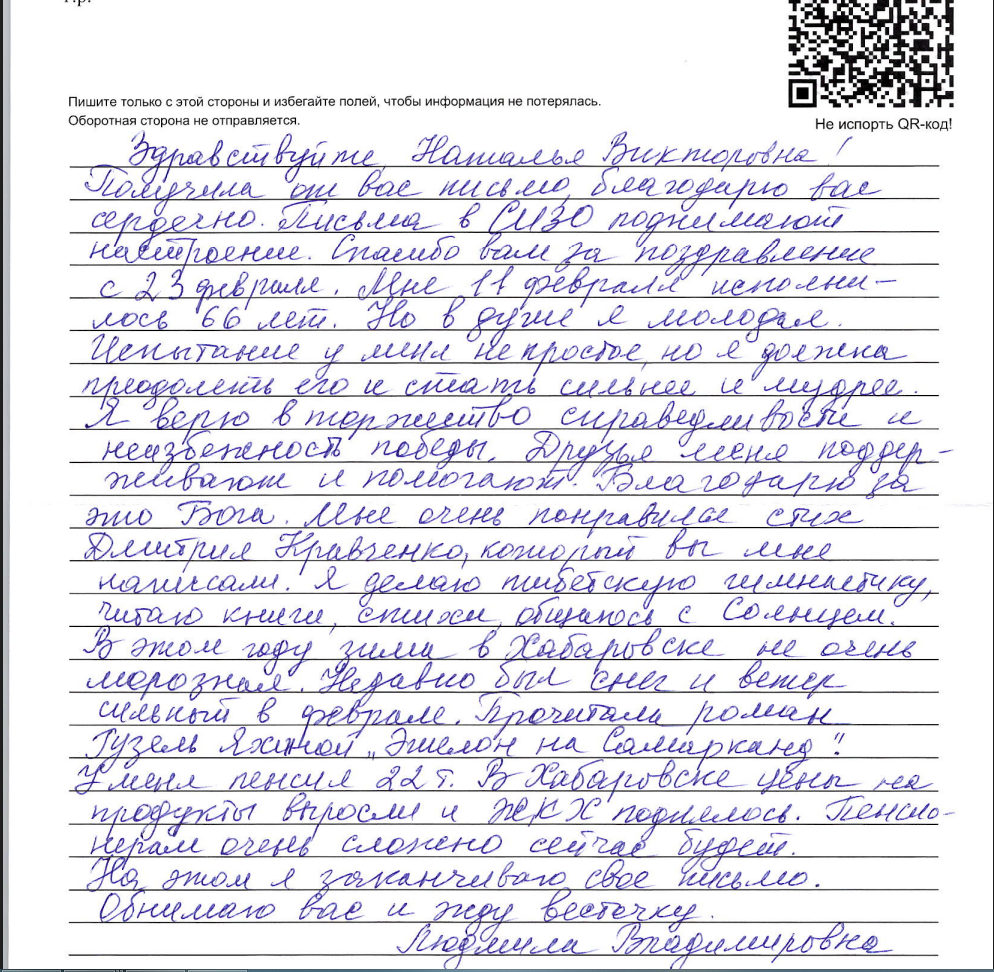 г.р.
Пишите только с этой стороны и избегайте полей, чтобы информация не потерялась.
Оборотная сторона не отправляется.
Не испорть QR-код!
Здравствуйте, Наталья Викторовна!
Получила от вас письмо, благодарю вас
сердечно. Письма в СИЗО поднимают
настроение. Спасибо вам за поздравление
с 23 февраля. Мне 11 февраля исполни-
лось 66 лет. Но в душе я молодая.
Испытание у меня непростое, но я должна
преодолеть его и стать сильнее и мудрее.
Я верю в торжество справедливости и
неизбежность победы. Друзья меня поддер-
живают и помогают. Благодарю за
это Бога. Мне очень понравился стих
Дмитрия Кравченко, который вы мне
написали. Я делаю тибетскую гимнастику,
читаю книги, стихи, общаюсь с Солнцем.
В этом году зима в Хабаровске не очень
морозная. Недавно был снег и ветер
сильный в феврале. Прочитала роман
Гузель Яхиной „Эшелон на Самарканд".
У меня пенсия 22 т. В Хабаровске цены на
продукты выросли и ЖКХ поднялось. Пенсио-
нерам очень сложно сейчас будет.
На этом я заканчиваю свое письмо.
Обнимаю вас и жду весточку.
Людмила Владимировна